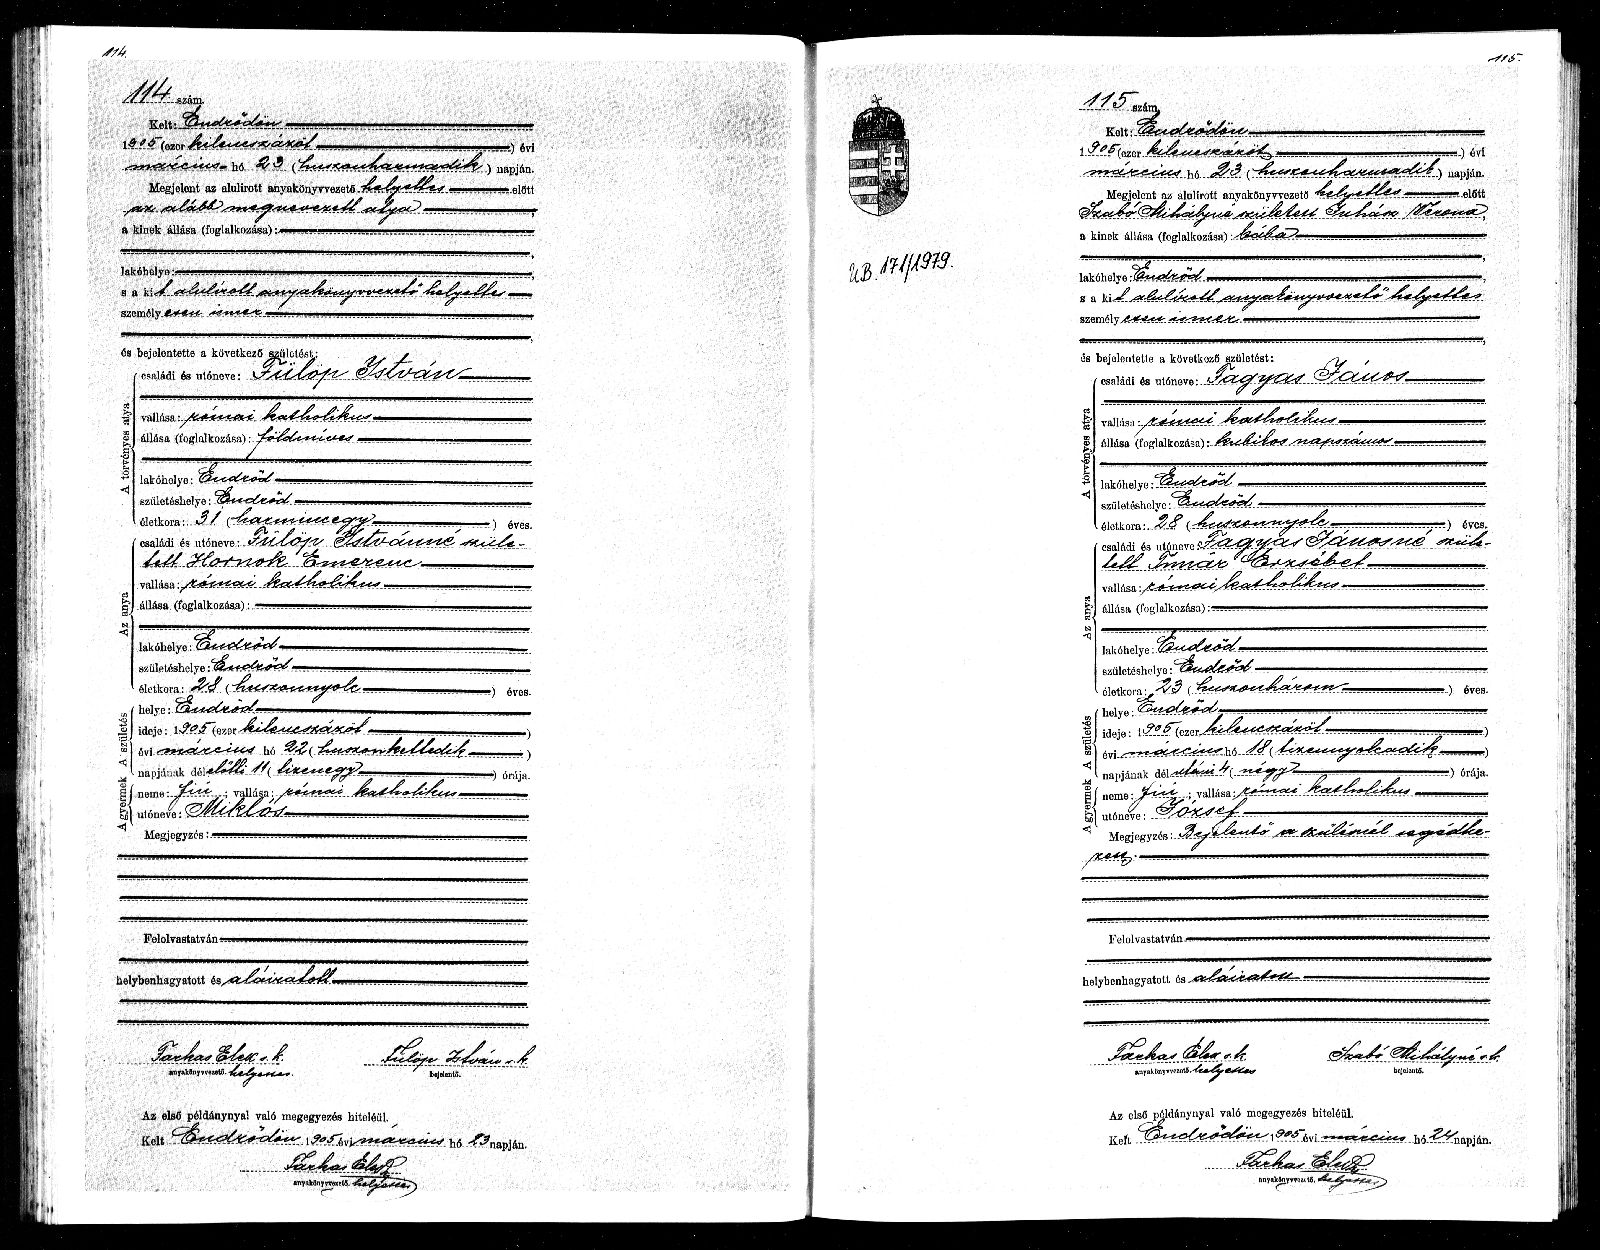 114.
114 szám.
Kelt: Endrődön
1905 (ezer kilenczszázöt) évi
március hó 23 (huszonharmadik) napján.
Megjelent az alulirott anyakönyvvezető helyettes előtt
az alább megnevezett atya
a kinek állása (foglalkozása):
lakóhelye:
s a kit alulirott anyakönyvvezető helyettes
személyesen ismer
és bejelentette a következő születést:
A törvényes atya
családi és utóneve: Fülöp István
vallása: római katholikus
állása (foglalkozása): földmives
lakóhelye: Endrőd
születéshelye: Endrőd
életkora: 31 (harminczegy) éves.
Az anya
családi és utóneve: Fülöp Istvánné szüle-
tett Hornok Emerenc
vallása: római katholikus
állása (foglalkozása):
lakóhelye: Endrőd
születéshelye: Endrőd
életkora: 28 (huszonnyolc) éves.
A születés
helye: Endrőd
ideje: 1905 (ezer kilenczszázöt)
évi március hó 22 (huszonkettedik)
napjának délelőtti 11 (tizenegy) órája.
A gyermek
neme: fiú; vallása: római katholikus
utóneve: Miklós
Megjegyzés:
Felolvastatván
helybenhagyatott és aláiratott
Farkas Elek s.k. Fülöp István s.k.
anyakönyvvezető. helyettes bejelentő.
Az első példánynyal való megegyezés hiteléül.
Kelt Endrődön, 1905 évi március hó 23 napján.
Farkas Elek
anyakönyvvezető. helyettes
115.
UB. 171/1979.
115 szám.
Kelt: Endrődön
1905 (ezer kilenczszázöt) évi
március hó 23 (huszonharmadik) napján.
Megjelent az alulirott anyakönyvvezető helyettes előtt
Szabó Mihályné született Juhász Verona,
a kinek állása (foglalkozása): bába
lakóhelye: Endrőd
s a kit alulirott anyakönyvvezető helyettes
személyesen ismer
és bejelentette a következő születést:
A törvényes atya
családi és utóneve: Fagyas János
vallása: római katholikus
állása (foglalkozása): kubikos napszámos
lakóhelye: Endrőd
születéshelye: Endrőd
életkora: 28 (huszonnyolc) éves.
Az anya
családi és utóneve: Fagyas Jánosné szüle-
tett Erzsébet
vallása: római katholikus
állása (foglalkozása):
lakóhelye: Endrőd
születéshelye: Endrőd
életkora: 23 (huszonhárom) éves.
A születés
helye: Endrőd
ideje: 1905 (ezer kilenczszázöt)
évi március hó 18 (tizennyolcadik)
napjának délutáni 4 (négy) órája.
A gyermek
neme: fiú; vallása: római katholikus
utóneve: József
Megjegyzés: Bejelentő a szülésnél segédke-
zett.
Felolvastatván
helybenhagyatott és aláiratott
Farkas Elek s.k. Szabó Mihályné s.k.
anyakönyvvezető. helyettes bejelentő.
Az első példánynyal való megegyezés hiteléül.
Kelt Endrődön, 1905 évi március hó 24 napján.
Farkas Elek
anyakönyvvezető. helyettes